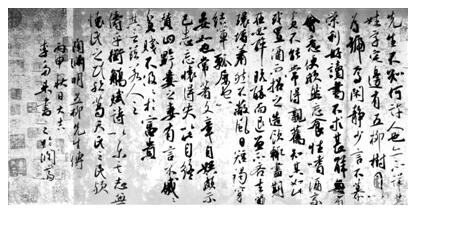 先生不知何許人也亦不詳其
姓字宅邊有五柳樹因以
為號焉閑靜少言不慕
榮利好讀書不求甚解每有
會意便欣然忘食性嗜酒家
貧不能常得親舊知其如此
置酒而招之造飲輒盡期
在必醉既醉而退曾不吝情去
環堵蕭然不蔽風日短褐穿
結簞瓢屢空
晏如也常著文章自娛頗示
己志忘懷得失以此自終
贊曰黔婁之妻有言不戚戚
貧賤不汲汲於富貴
其言茲若人之
儔乎銜觴賦詩以樂其志無
懷氏之民歟葛天氏之民歟
陶淵明五柳先生傳
秋日
書於